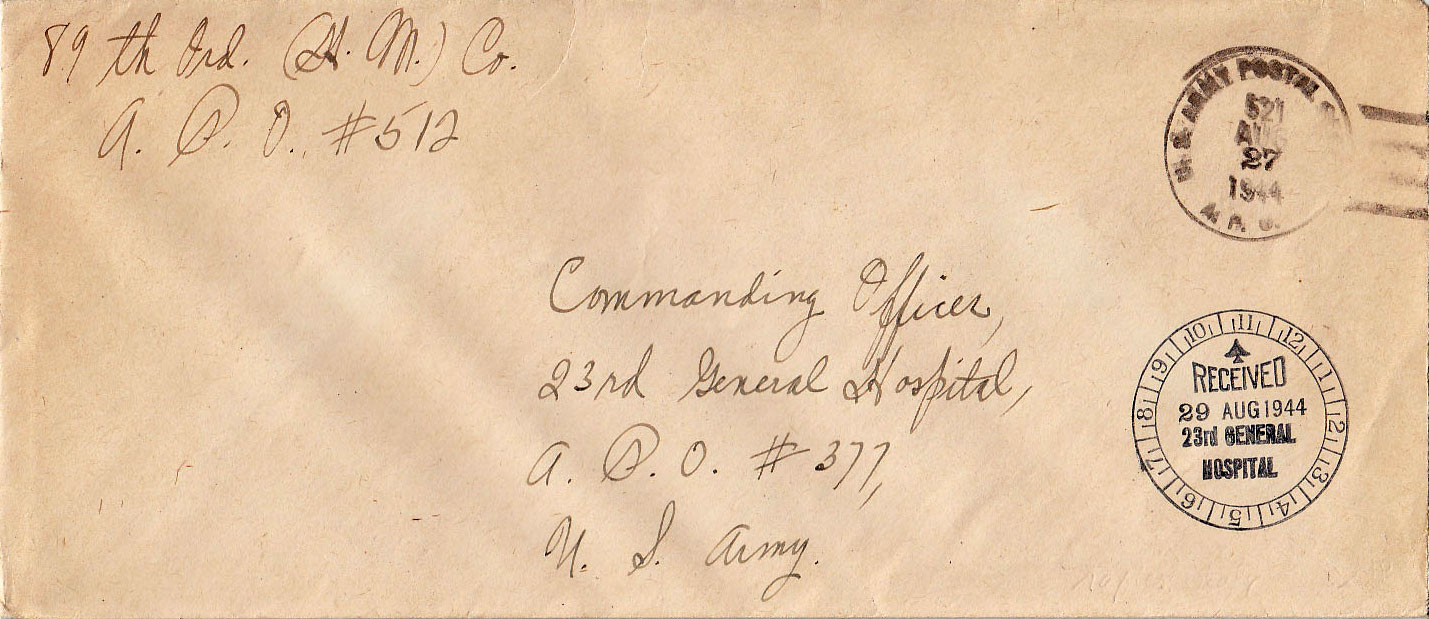 89th Ord. (H. M.) Co.
A. P. O. #512
U. S. ARMY POSTAL
521
AUG
27
1944
A. P. O.
Commanding Officer,
23rd General Hospital,
A. P. O. #377,
U. S. Army.
10 11 12 1 2 3 4 5 6 7 8 9
RECEIVED
29 AUG 1944
23rd GENERAL
HOSPITAL